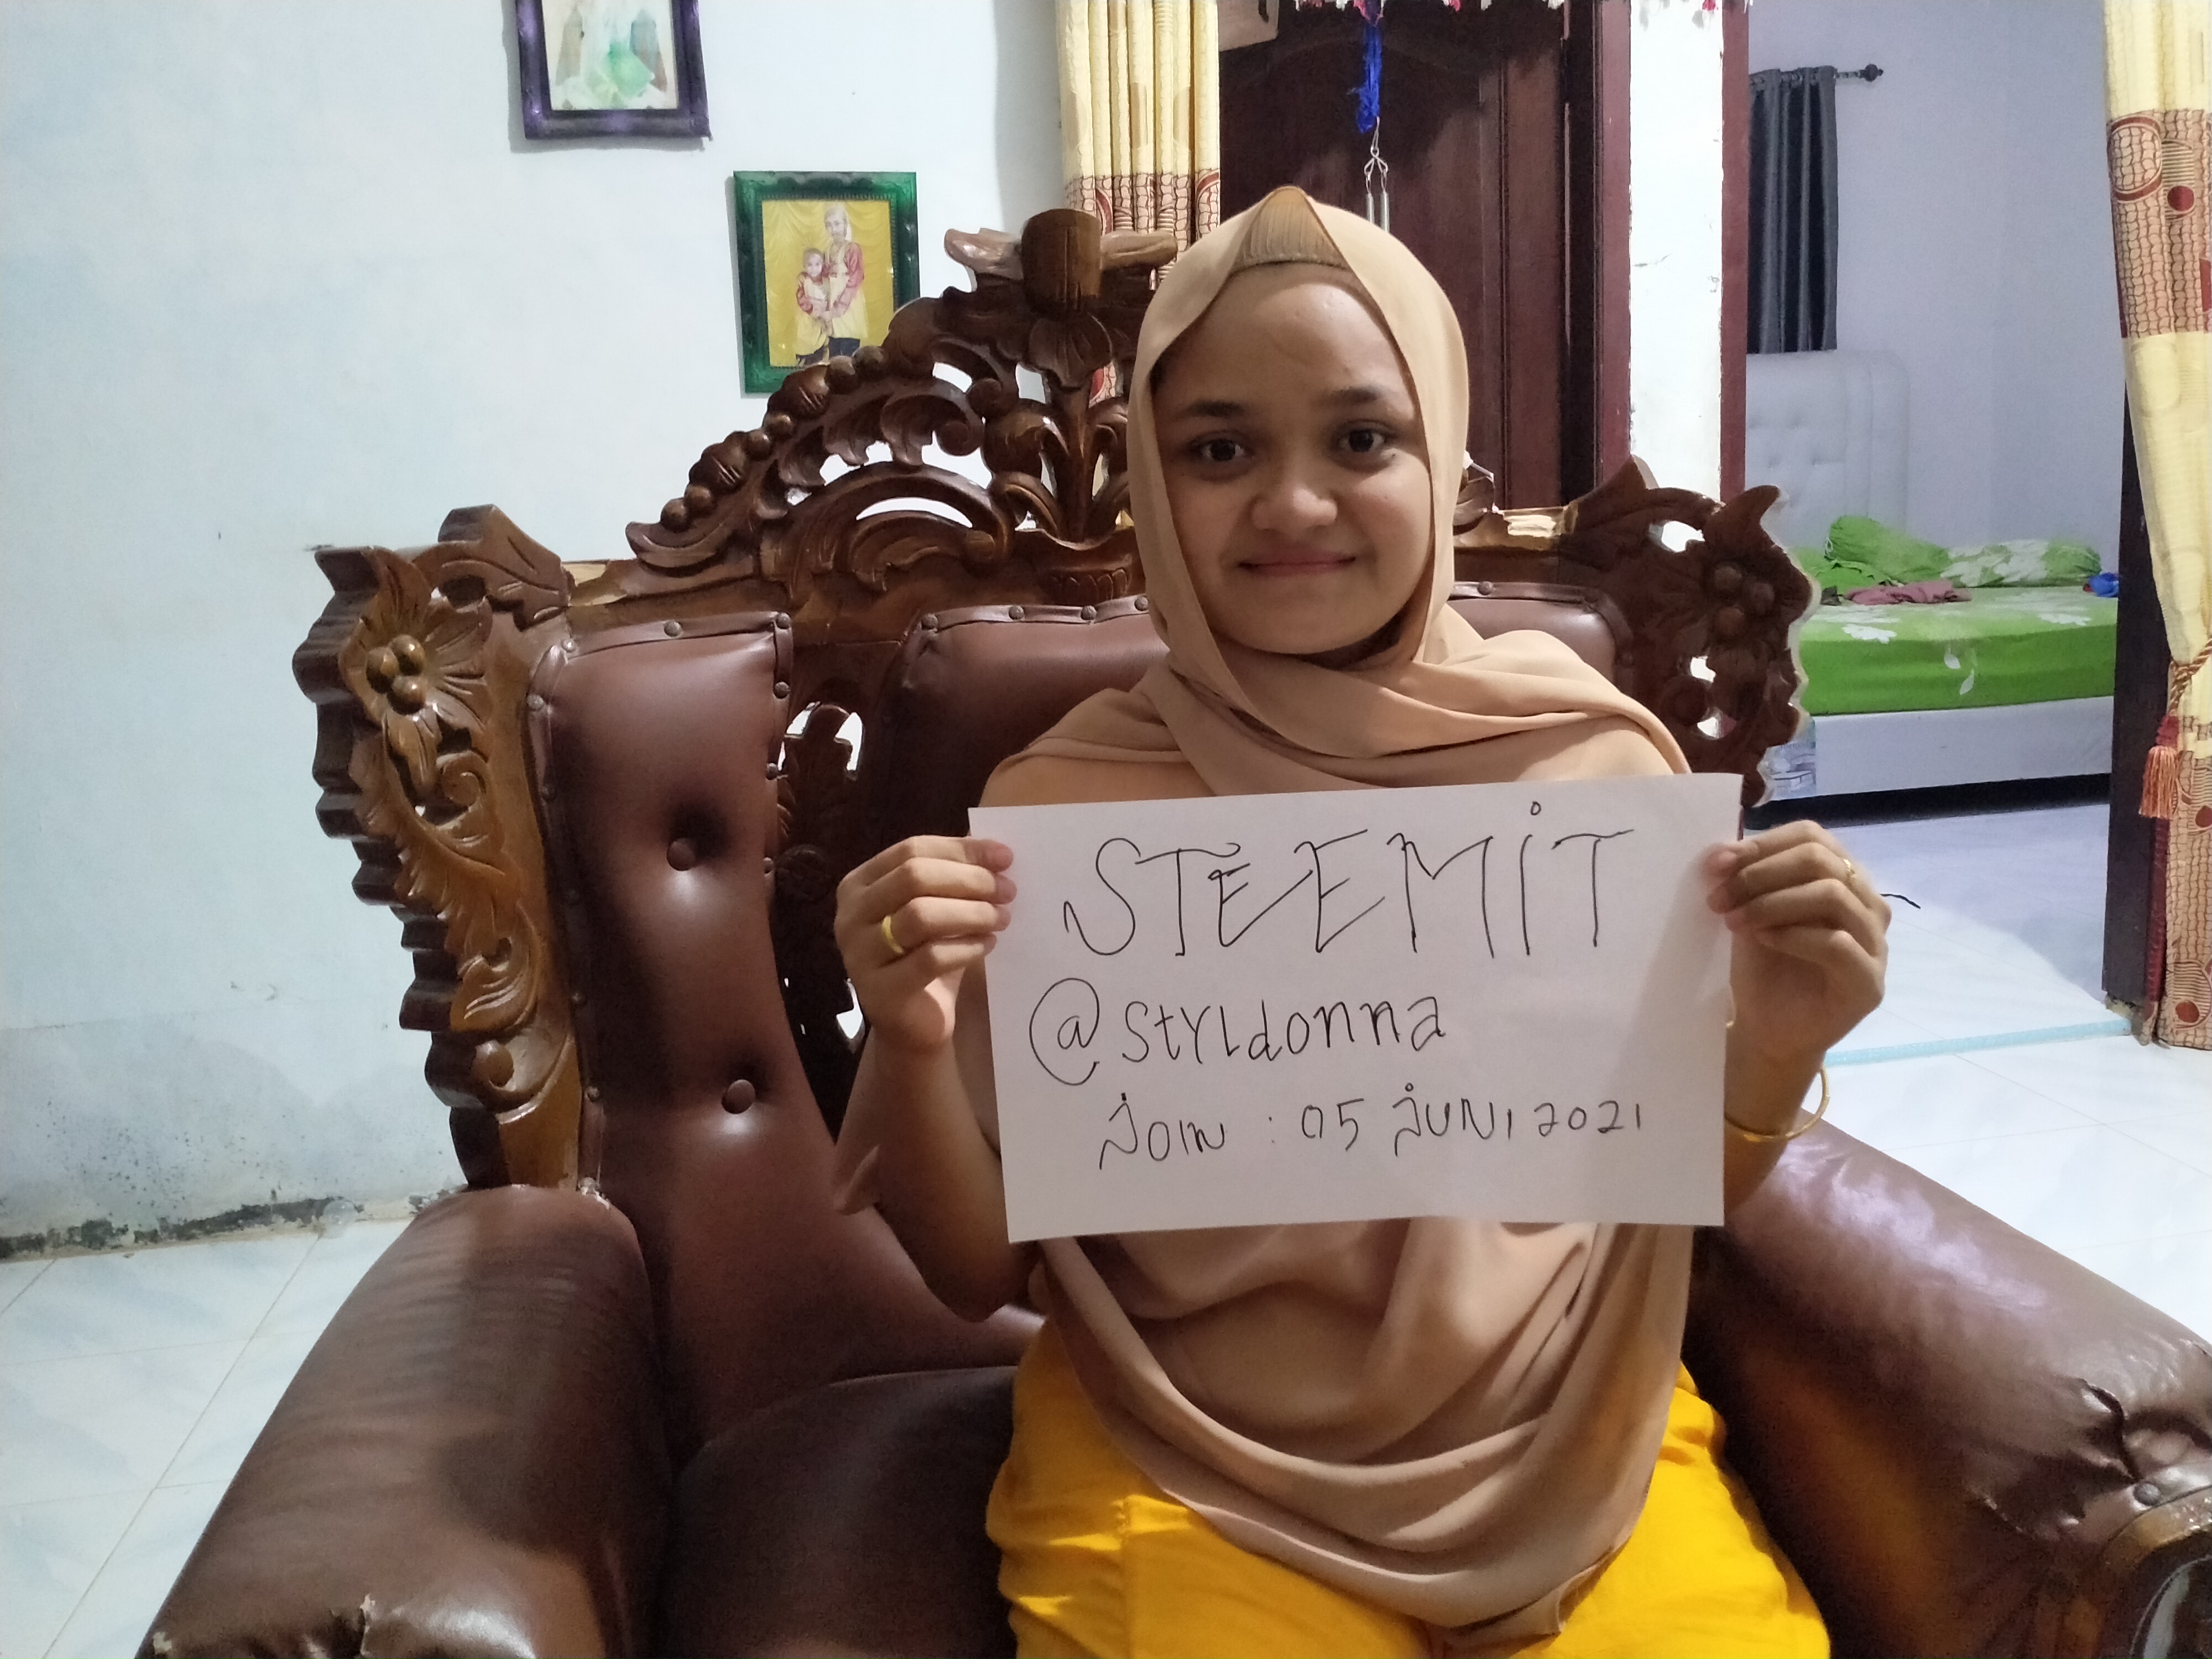 STEEMIT
@styldonna
Join : 05 JUNI 2021